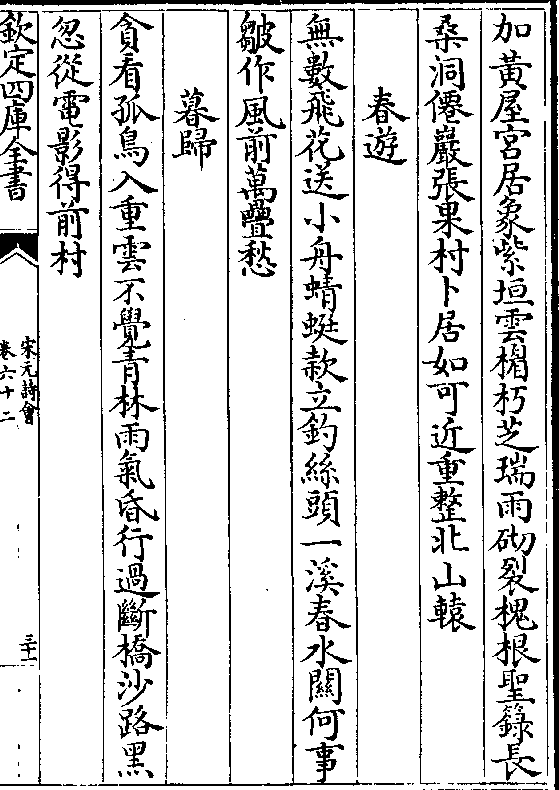 加黃屋宮居象紫垣雲楣朽芝瑞雨砌裂槐根聖籙長
桑洞僊巖張果村卜居如可近重整北山轅
春遊
無數飛花送小舟蜻蜓款立釣絲頭一溪春水關何事
皺作風前萬疊愁
暮歸
貪看孤鳥入重雲不覺青林雨氣昏行過斷橋沙路黑
忽從電影得前村
欽定四庫全書
宋元詩會
卷六十二
三十一